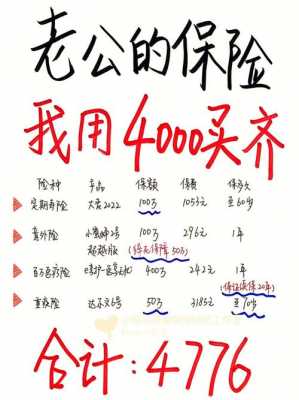 老公的保险
我用4000买齐
险种 产品 保额 保费 保多久
定期寿险 大麦2022 100万 1053元 至60岁
意外险 小蜜蜂2号 100万 296元 1年
超越版 (猝死保障50万)
百万医疗险 e享护-医享无忧 400万 242元 1年
(保证续保20年)
重疾险 达尔文6号 50万 3185元 至70岁
合计:4776